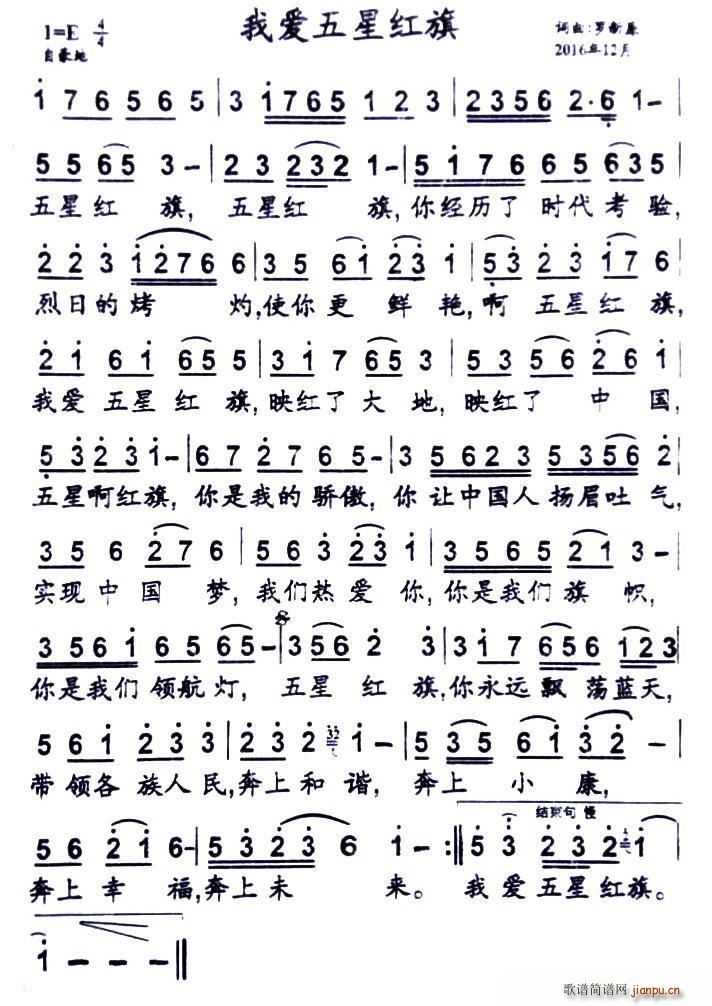 我爱五星红旗
1=E 4/4
自豪地
词曲:罗新原
2016年12月
i 7 6 5 6 5 | 3 i765 1 2 3 | 2356 2·6 1– |
5 5 65 3– | 2 3 232 1– | 5 i 7 6 6 5 635 |
五星红 旗, 五星红 旗,你经历了 时代考验,
2 2 3 i276 6 | 3 5 6i 23 i | 53 23 i7 6 |
烈日的烤 灼,使你更 鲜艳,啊 五星红旗,
2 i 6 i 65 5 | 3 i 7 65 3 | 5 3 56 26 i |
我爱五星红旗,映红了大地,映红了 中国,
5 3 2 3 i– | 6 7 2 7 6 5– | 3 5 6 2 3 5 356 2 |
五星啊红旗,你是我的骄傲,你让中国人扬眉吐气,
3 5 6 27 6 | 5 6 3 23 i | 3 5 6 5 2i 3– |
实现中国 梦,我们热爱 你,你是我们旗 帜,
3 5 6 i 65 65– | 356 2 3 | 3 i 7 656 123 |
你是我们领航灯, 五星红 旗,你永远飘荡蓝天,
5 6i 2 3 3 | 3 2 2 32 i– | 5 35 6i 32– |
带领各族人民,奔上和谐,奔上 小 康,
结束句 慢
5 6 2i 6– | 5 2 3 2 3 6 i– :|| 5 3 2 3 2 i |
奔上幸 福,奔上未 来。 我爱五星红旗。
i – – – ||
歌谱简谱网
jianpu.cn